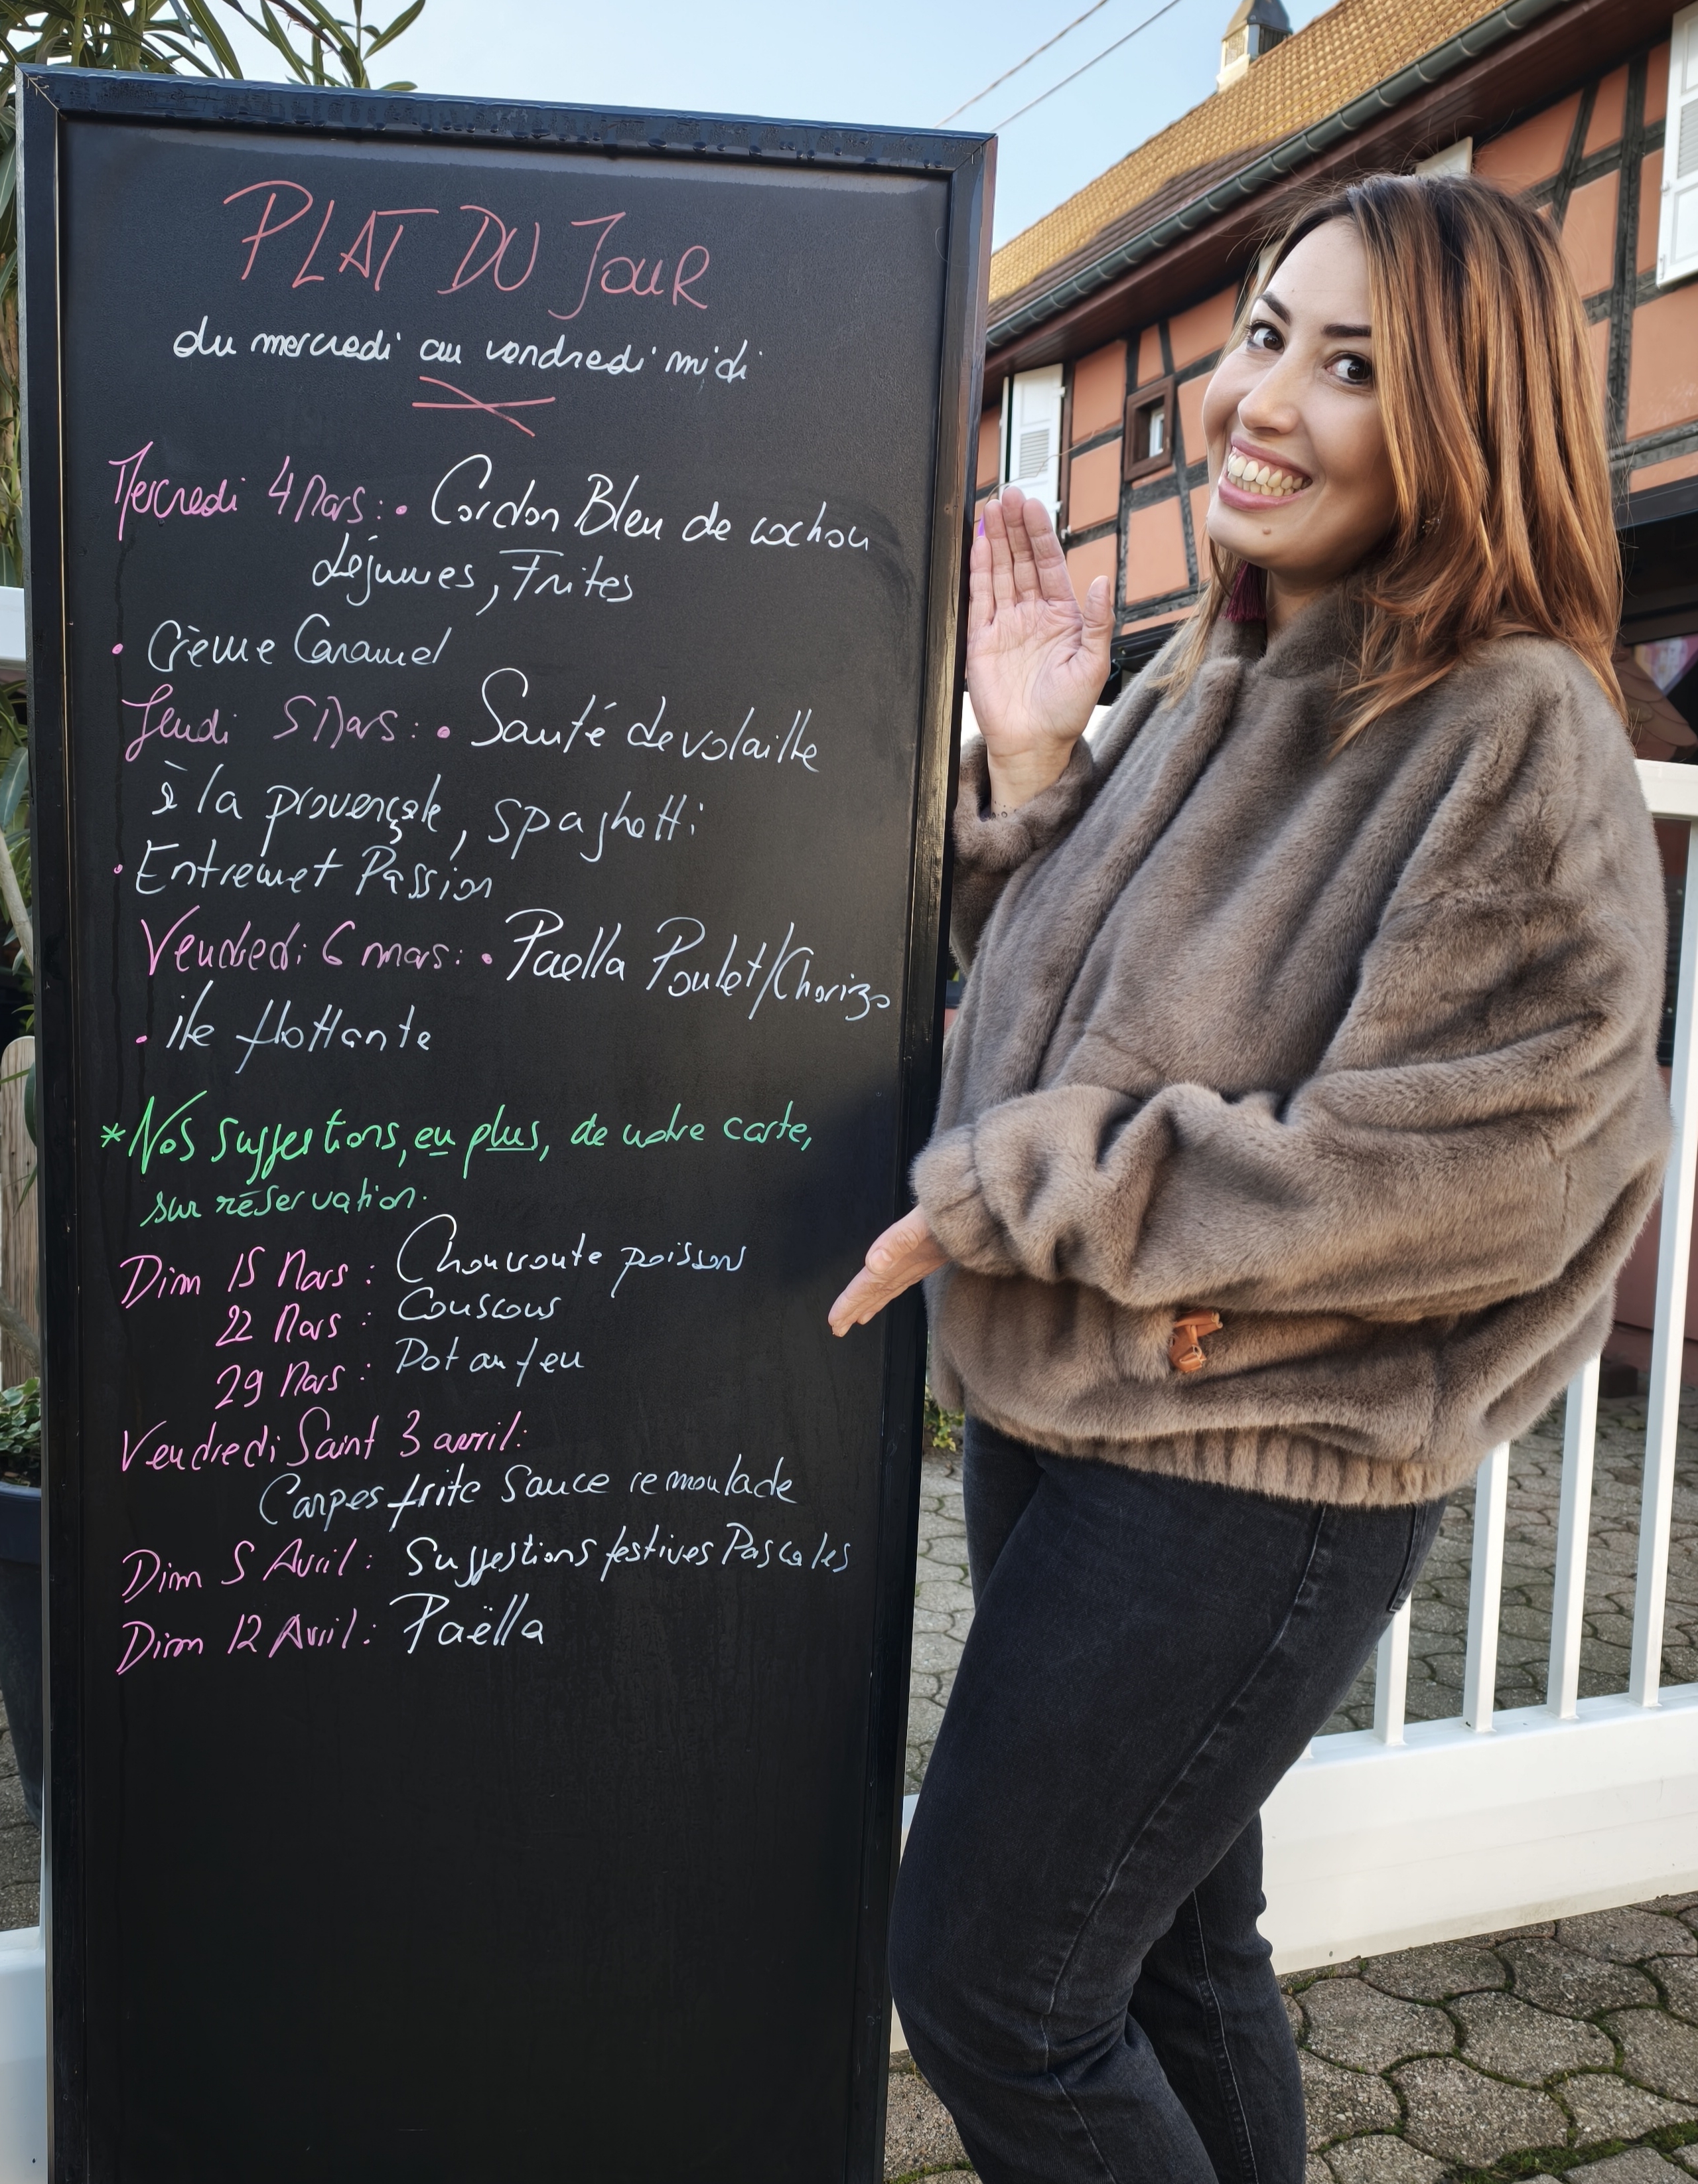 PLAT DU JOUR
du mercredi au vendredi midi
Mercredi 4 Mars : • Cordon Bleu de cochon
Légumes, Frites
• Crème Caramel
Jeudi 5 Mars : • Sauté de volaille
à la provençale, spaghetti
• Entremet Passion
Vendredi 6 mars : • Paella Poulet/Chorizo
• île flottante
* Nos suggestions, en plus, de notre carte,
sur réservation.
Dim 15 Mars : Choucroute poissons
22 Mars : Couscous
29 Mars : Pot au feu
Vendredi Saint 3 avril :
Carpes frite Sauce remoulade
Dim 5 Avril : Suggestions festives Pascales
Dim 12 Avril : Paëlla